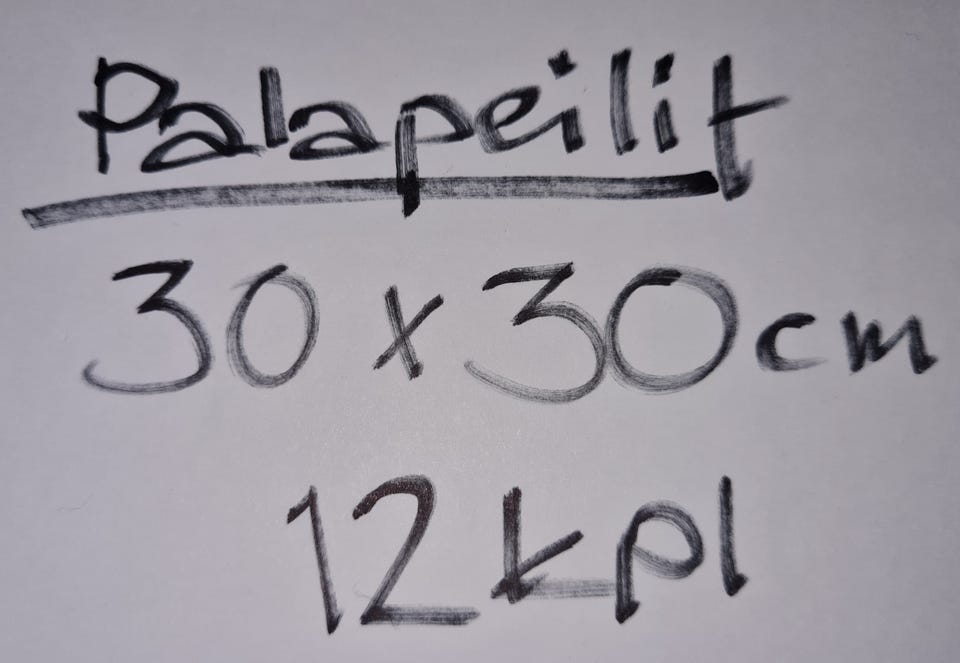 Palapeilit
30 x 30 cm
12 kpl